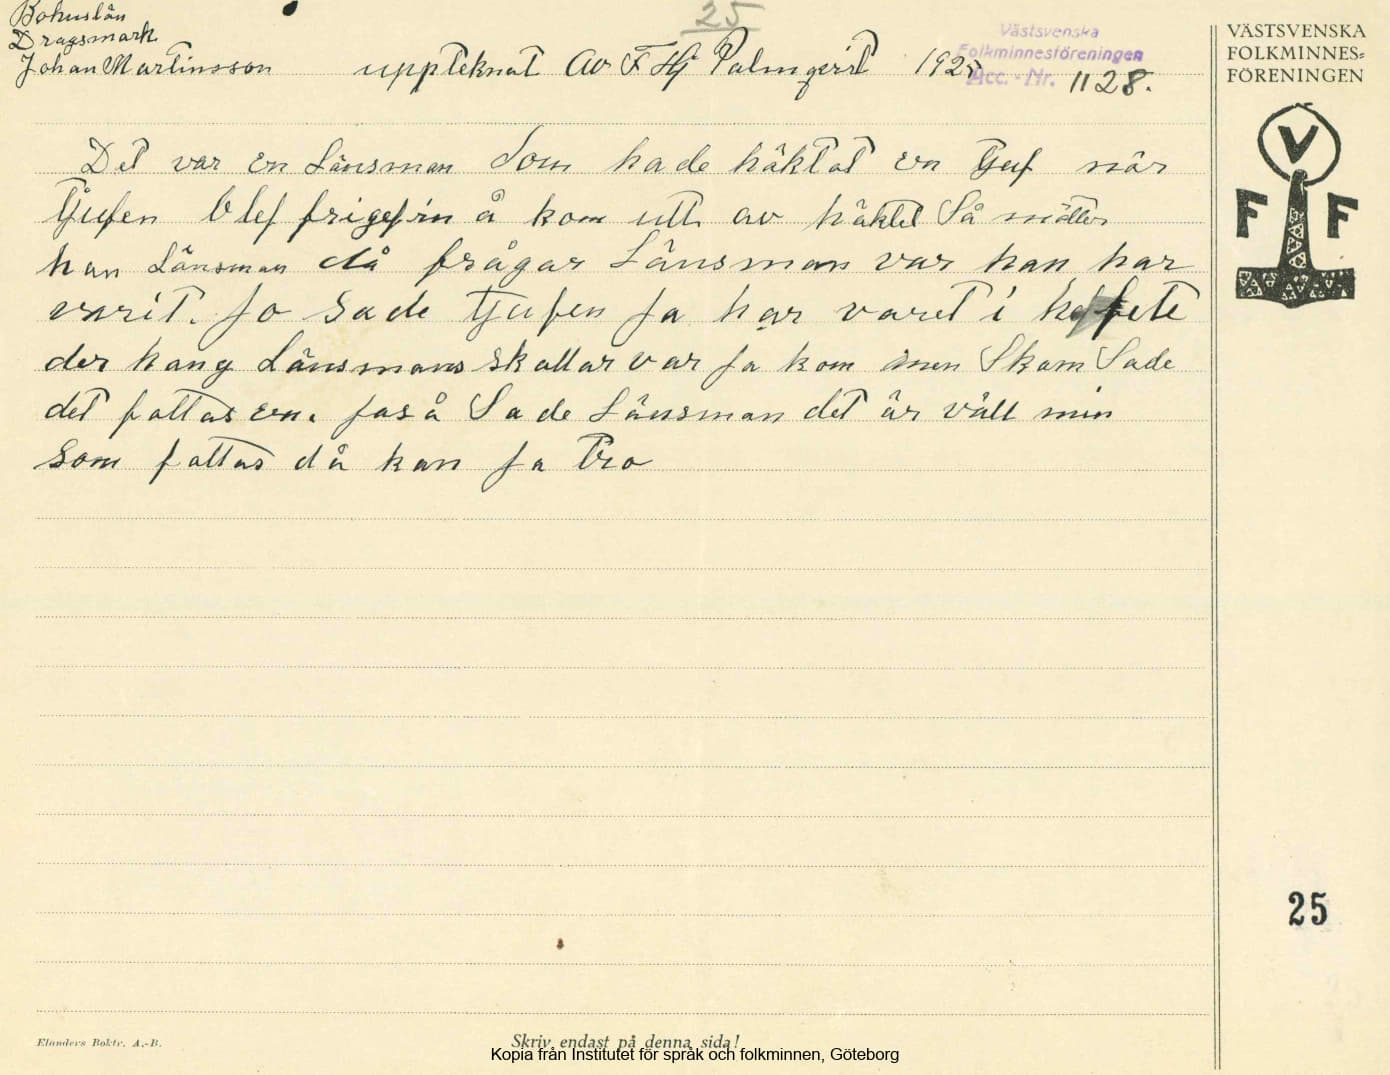 25
Bohuslän
Dragsmark
Johan Martinsson uppteknat Av F Hj Palmqvist 1925
Västsvenska
Folkminnesföreningen
Acc. - Nr. 1128.
VÄSTSVENSKA
FOLKMINNES=
FÖRENINGEN
V
F F
Det var en Länsman Som hade häktat en tjuf när
tjufen blef frigefvin å kom utt av häktet Så mötter
han Länsman då frågar Länsman var han har
varit. Jo Sade tjufen Ja har varet i
der hang Länsmans skallar var Ja kom men Skam Sade
det fattas en. Jaså Sade Länsman det är väll min
som fattas då kan Ja tro
25
Elanders Boktr. A.-B.
Skriv endast på denna sida!
Kopia från Institutet för språk och folkminnen, Göteborg